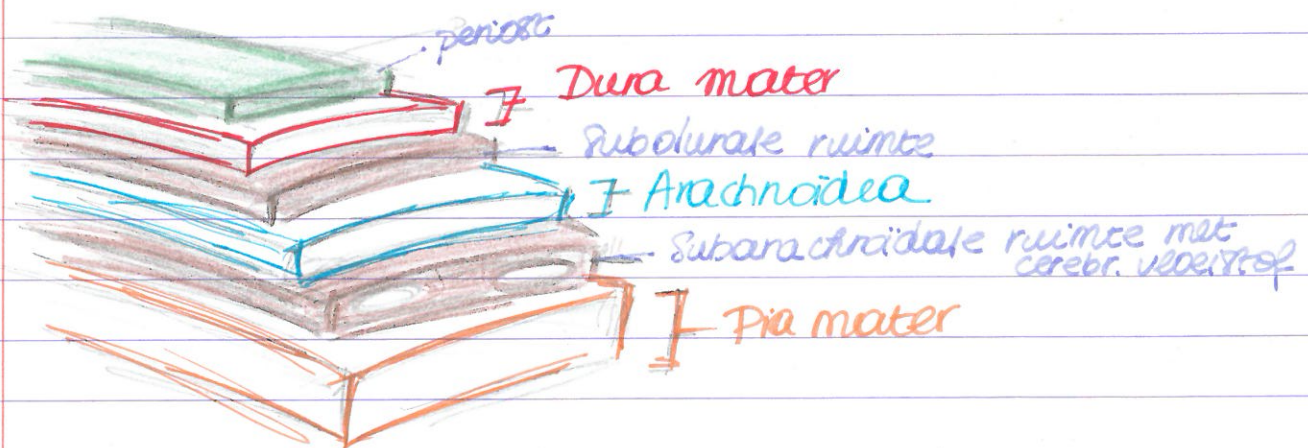 periost
Dura mater
Subdurale ruimte
Arachnoïdea
Subarachnoïdale ruimte met
cerebr. vloeistof
Pia mater